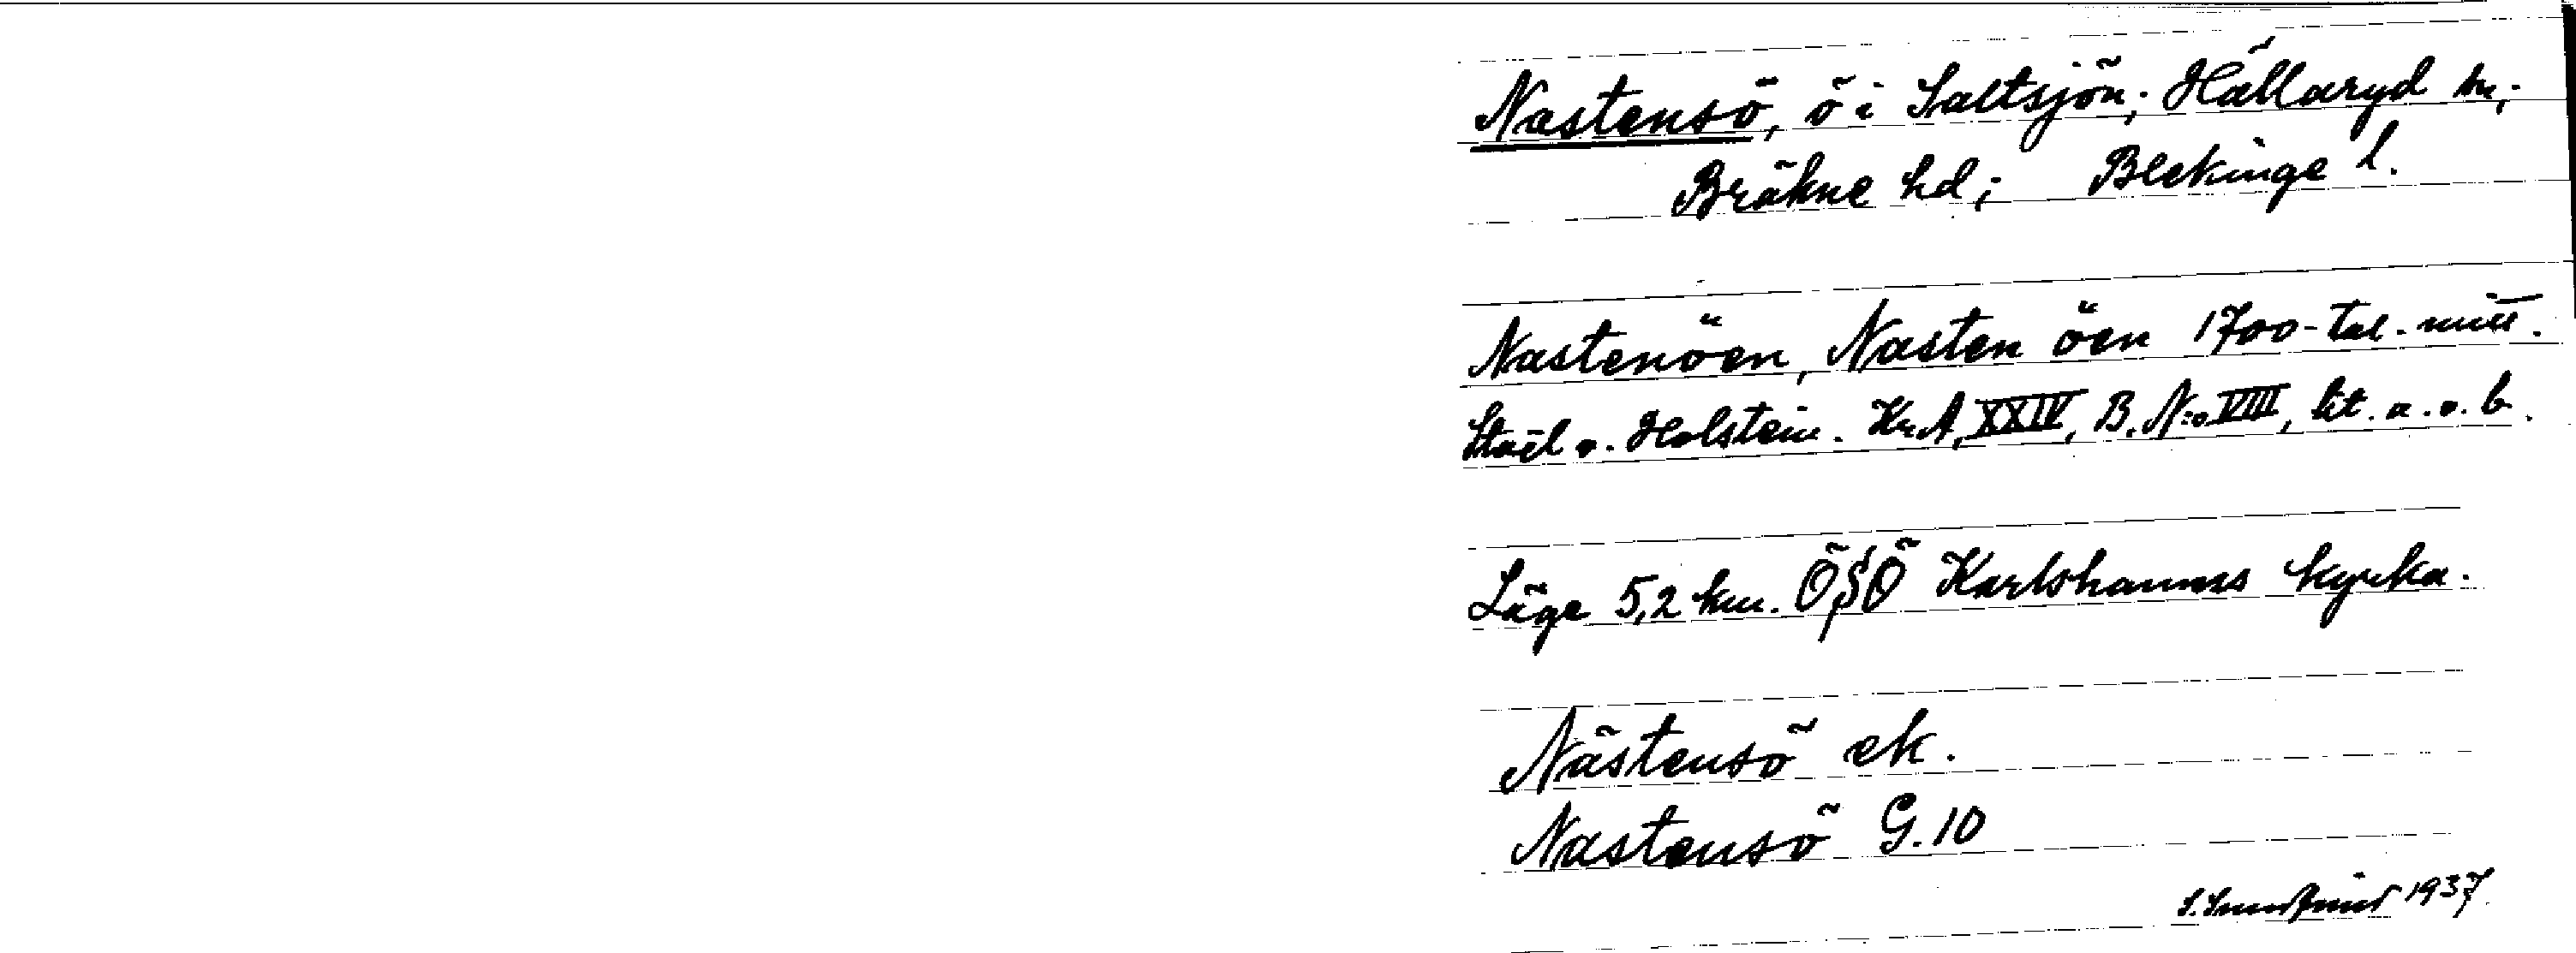 Nastensö, ö i Saltsjön; Hällaryd sn;
Bräkne hd; Blekinge l.
Nastenöen, Nasten öen 1700-tal. mitt.
Staël v. Holstein. KrA, XXIV, B. N:o VIII, lit. a. o. b.
Läge 5,2 km. ÖSÖ Karlshamns kyrka.
Nästensö ek.
Nastensö G. 10
1937